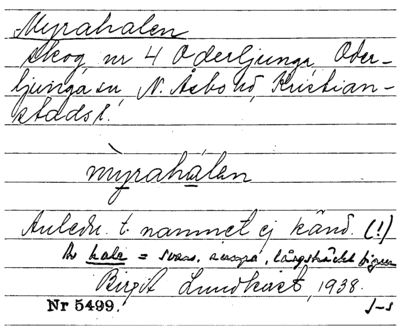 Myrahalen
skog nr 4 Oderljunga, Oder-
ljunga sn N. Åsbo hd, Kristian-
stads l.
myrahálen
Anledn. t. namnet ej känd. (!)
hale = svans, långsträckt
Birgit Lundkvist, 1938.
Nr 5499.